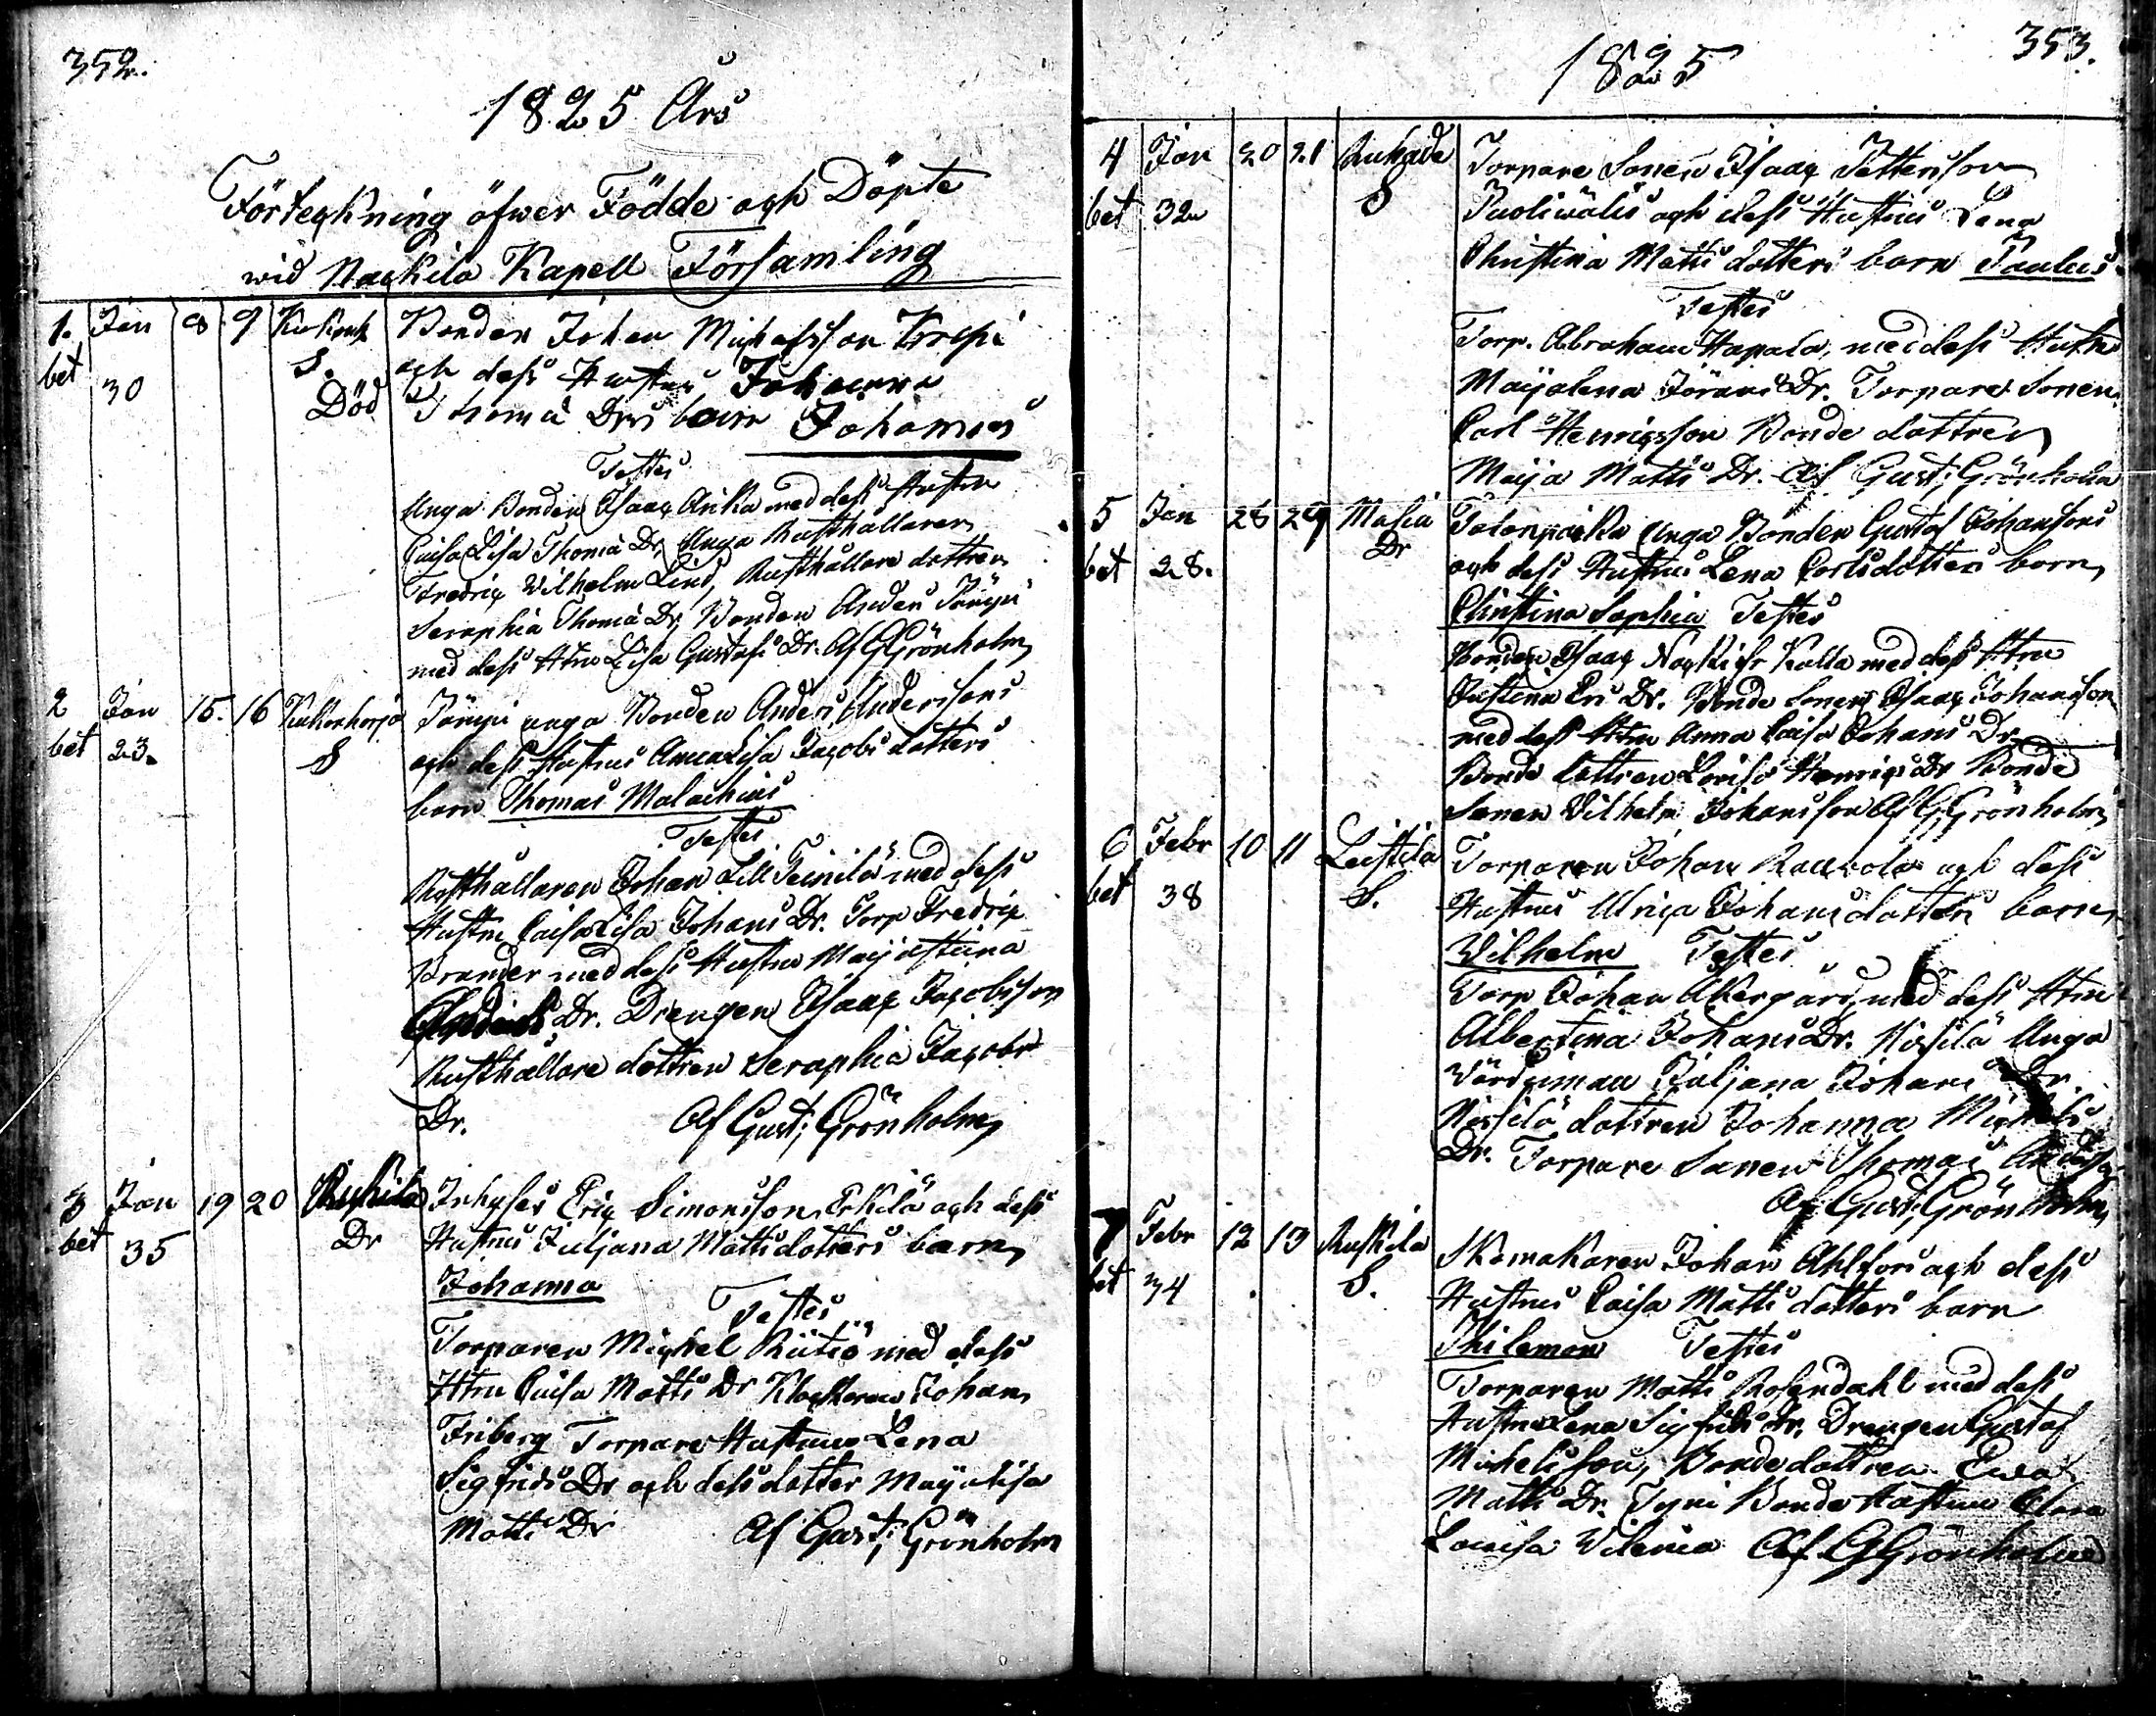 352.
1825 Års
Förteckning öfwer Födde och Döpte
wid Nackila Kapell Församling
1. Jan 8 9 Bonden Johan Michelsson Krepi
bet 30 S. och dess Hustrus Johanna
Död Thomæ Drs barn Johannes
Testes
Unga Bonden Isaac Anika med dess Hustru
Caisa Lisa Thomæ Dr, Unga Rusthållaren
Fredric Wilhelm Lind, Rusthållare dottren
Seraphia Thomæ Dr, Bonden Anders
med dess Htru Lisa Gustafs Dr. Af G Grönholm
2 Jan 15. 16 unga Bonden Anders Anderssons
bet 23. S och dess Hustrus Anna Lisa Jacobs dotters
barn Thomas Malachias
Testes
Rusthållaren Johan Lill Teinilä med dess
Hustru Caisa Lisa Johans Dr. Torp Fredric
Brander med dess Hustru Maja Stina
Dr. Drengen Isaac Jacobsson
Rusthållare dottren Seraphia Jacobs
Dr. Af Gust; Grönholm
3 Jan 19 20 Inhyses Eric Simonsson Erkilä och dess
bet 35 Dr Hustrus Juljana Matts dotters barn
Johanna
Testes
Torparen Michel med dess
Htru Caisa Matts Dr Klockaren Johan
Friberg Torpare Hustrun Lena
Sigfrids Dr och dess dotter Maja Lisa
Matts Dr Af Gust; Grönholm
1825 353.
4 Jan 20 21 Torpare Sonen Isaac Pettersson
bet 32 S och dess Hustrus Lena
Christina Matts dotters barn Paulus
Testes
Torp. Abraham Hapala, med dess Hustru
Maja Lena Görans Dr. Torpare Sonen
Carl Henricsson Bonde dottren
Maija Matts Dr. Af Gust; Grönholm
5 Jan 28 29 Masia unga Bonden Gustaf Johanssons
bet 28. Dr och dess Hustrus Lena Carlsdotters barn
Christina Sophia Testes
Bonden Isaac Kalla med dess Htru
Justina Eric Dr. Bonde Sonen Isaac Johansson
med dess Htru Anna Caisa Johans Dr.
Bonde dottren Lovisa Henrics Dr Bonde
Sonen Wilhelm Johansson Af G Grönholm
6 Febr 10 11 Leistila Torparen Johan och dess
bet 38 S. Hustrus Ulrica Johans dotters barn
Wilhelm Testes
Torp Johan Åkergård, med dess Htru
Albertina Johans Dr. Unga
Juljana Johans Dr.
dottren Johanna Michels
Dr. Torpare Sonen Thomas
Af Gust; Grönholm
7 Febr 12 13 Ruskila Skomakaren Johan Ahlfors och dess
bet 34 S. Hustrus Caisa Matts dotters barn
Philemon Testes
Torparen Matts Rosendahl med dess
Hustru Lena Sigfrids Dr. Drengen Gustaf
Michelsson, Bonde dottren Eva
Matts Dr. Bonde Hustrun Clara
Lovisa Af G Grönholm